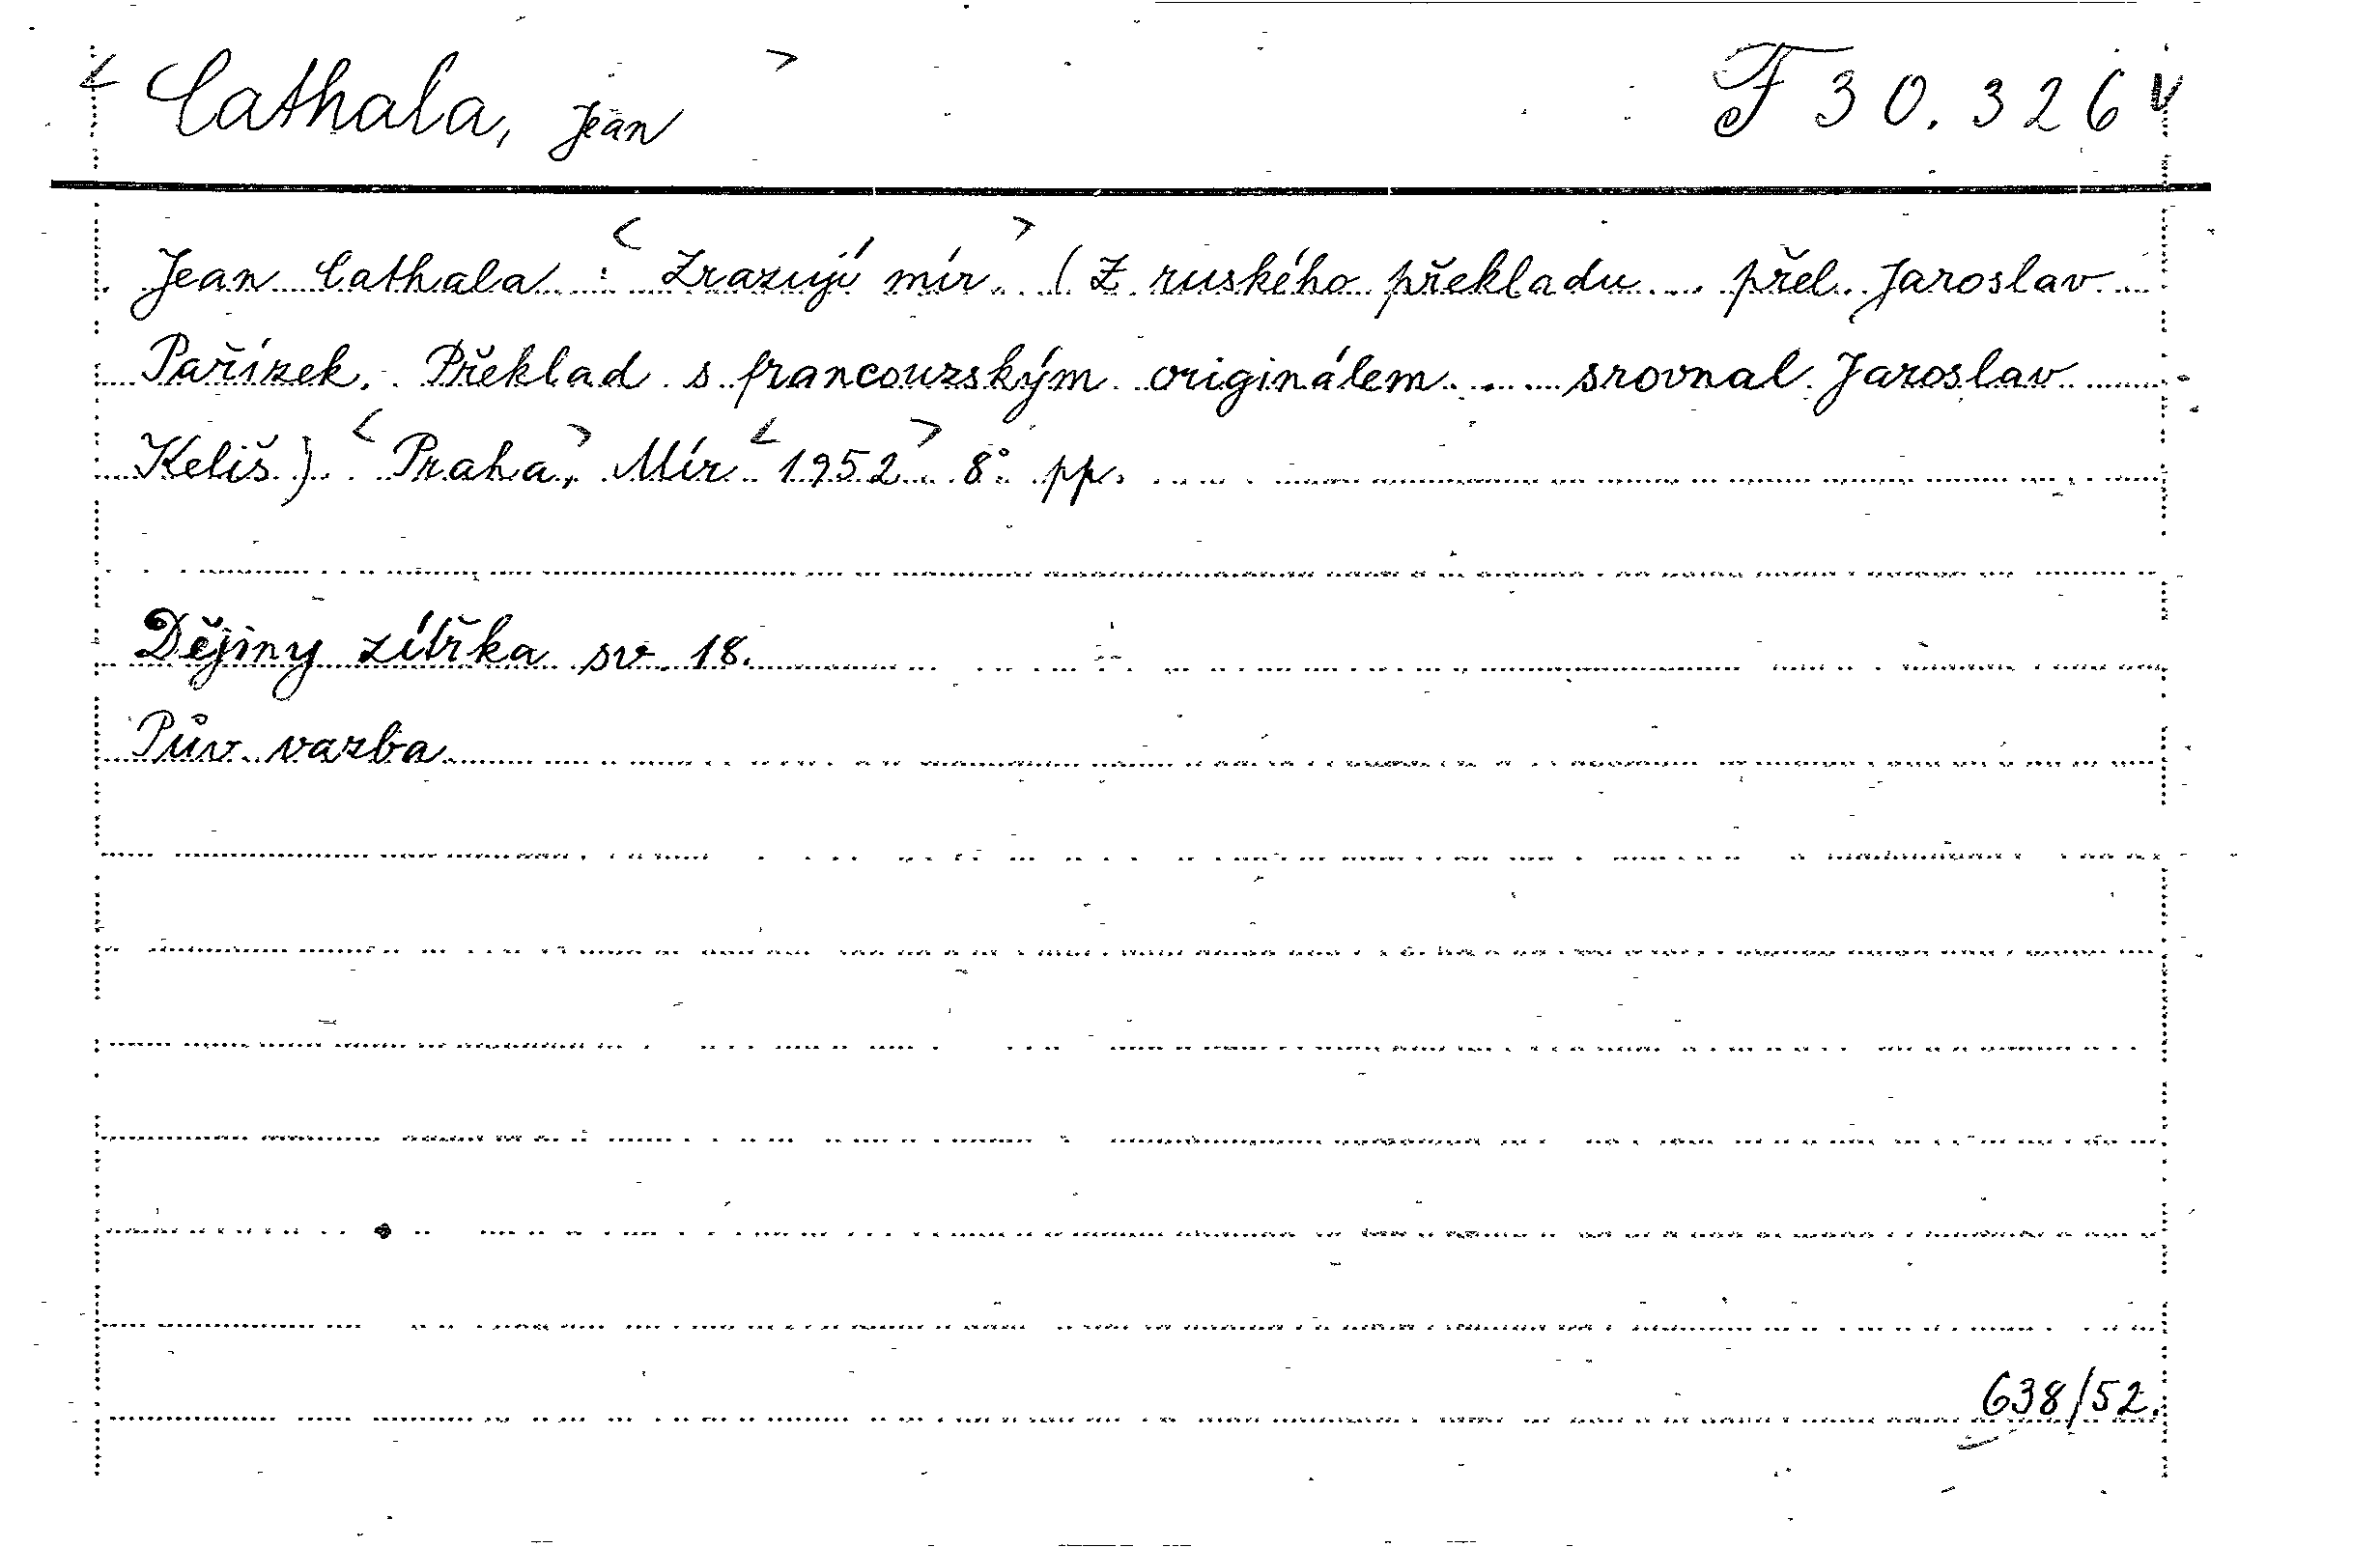 < Cathala, Jean > F 30.326 v
Jean Cathala : < Zrazují mír > . (Z ruského překladu ... přel. Jaroslav
Pařízek. Překlad s francouzským originálem ... srovnal Jaroslav
Keliš). < Praha, > Mír < 1952 > . 8° pp.
Dějiny zítřka sv. 18.
Pův. vazba
638/52.